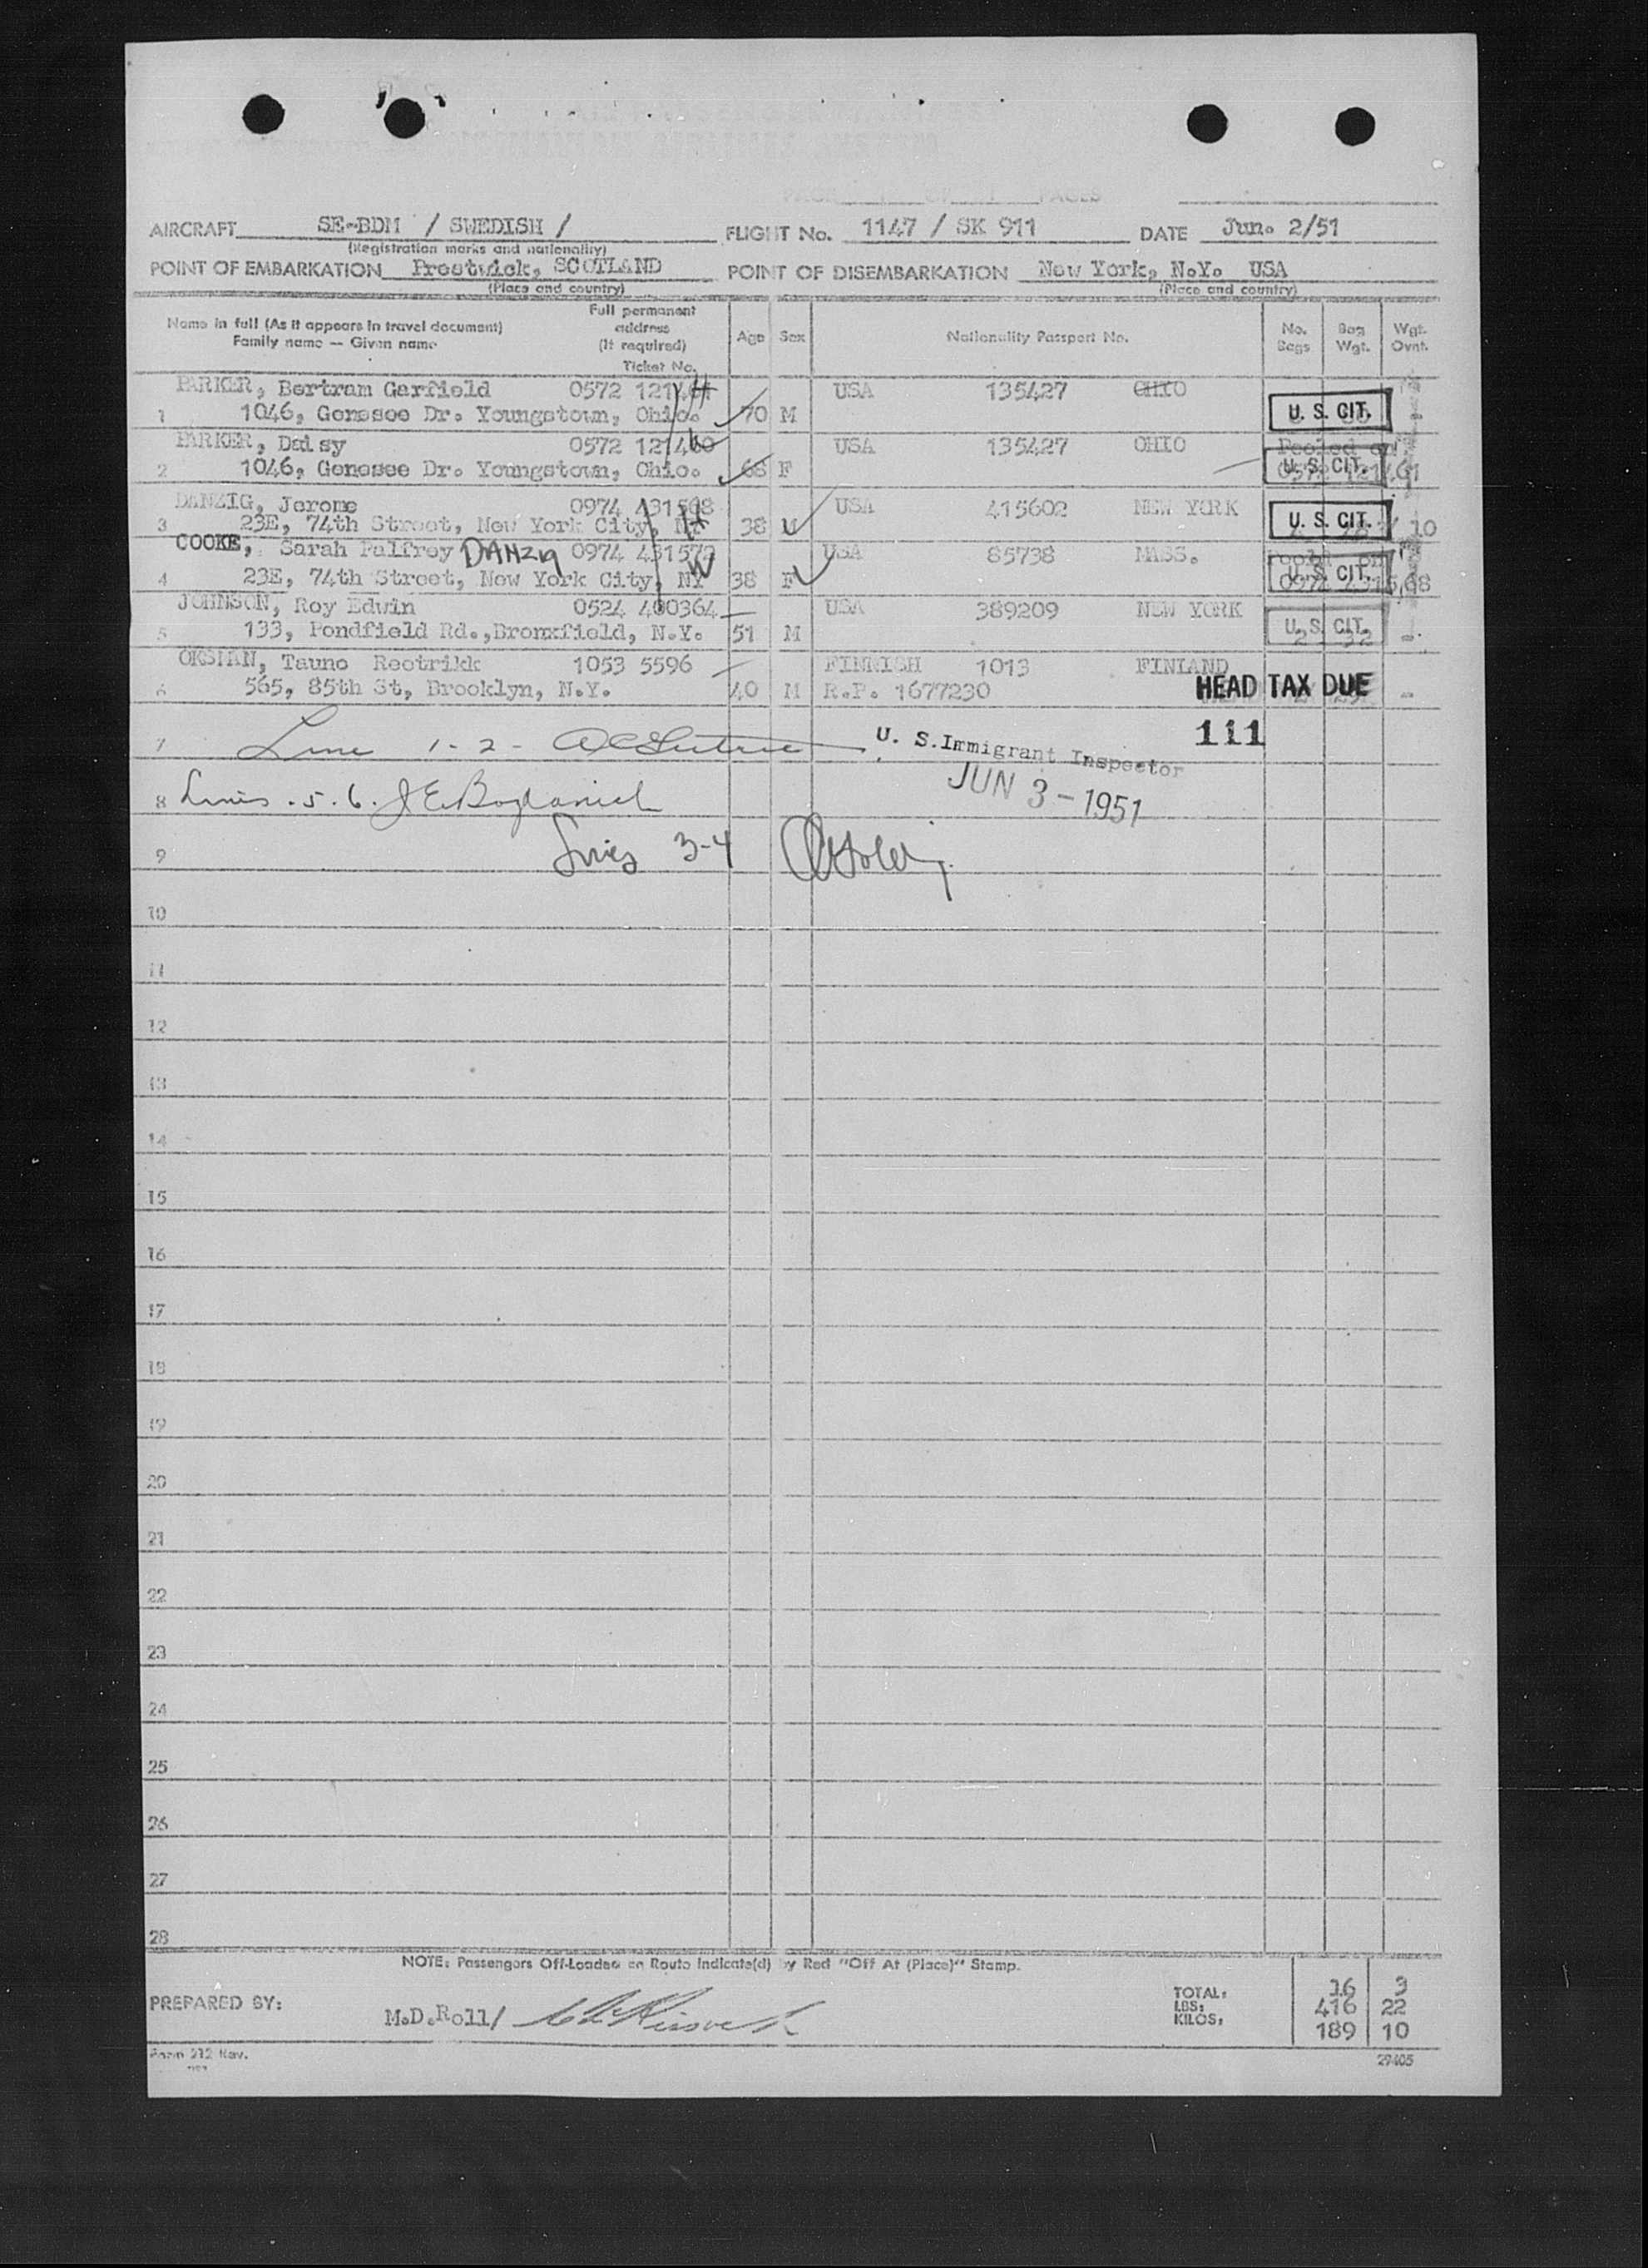 AIRCRAFT SE-BDM / SWEDISH / FLIGHT No. 1147 / SK 911 DATE Jun. 2/51
(Registration marks and nationality)
POINT OF EMBARKATION Prestwick, SCOTLAND POINT OF DISEMBARKATION New York, N.Y. USA
(Place and country) (Place and country)
Name in full (As it appears in travel document) Full permanent address (If required) Age Sex Nationality Passport No. No. Bags Bag Wgt. Wgt. Ovnt.
Family name — Given name Ticket No.
PARKER, Bertram Garfield 0572 121461 USA 135427 OHIO
1 1046, Genesee Dr. Youngstown, Ohio. 70 M U. S. CIT.
PARKER, Daisy 0572 121460 USA 135427 OHIO Pooled on
2 1046, Genesee Dr. Youngstown, Ohio. 68 F U. S. CIT. 0572 121461
DANZIG, Jerome 0974 431568 USA 415602 NEW YORK
3 23E, 74th Street, New York City, NY H 38 M U. S. CIT. 10
COOKE, Sarah Palfrey DANZIG 0974 431572 USA 85738 MASS. Pooled on
4 23E, 74th Street, New York City, NY W 38 F U. S. CIT. 0974 431568
JOHNSON, Roy Edwin 0524 400364 USA 389209 NEW YORK
5 133, Pondfield Rd.,Bronxfield, N.Y. 51 M U. S. CIT. 2 32 -
OKSMAN, Tauno Reotrikk 1053 5596 FINNISH 1013 FINLAND
6 565, 85th St, Brooklyn, N.Y. 40 M R.P. 1677230 HEAD TAX DUE -
111
7 Line 1-2- U. S. Immigrant Inspector
JUN 3-1951
8 Lines . 5. 6. J E Bogdanich
9 Lines 3-4
10
11
12
13
14
15
16
17
18
19
20
21
22
23
24
25
26
27
28
NOTE: Passengers Off-Loaded en Route Indicate(d) by Red "Off At (Place)" Stamp.
PREPARED BY: M.D.Roll/ TOTAL: 16 3
LBS: 416 22
KILOS: 189 10
Form 212 Nav. 29405